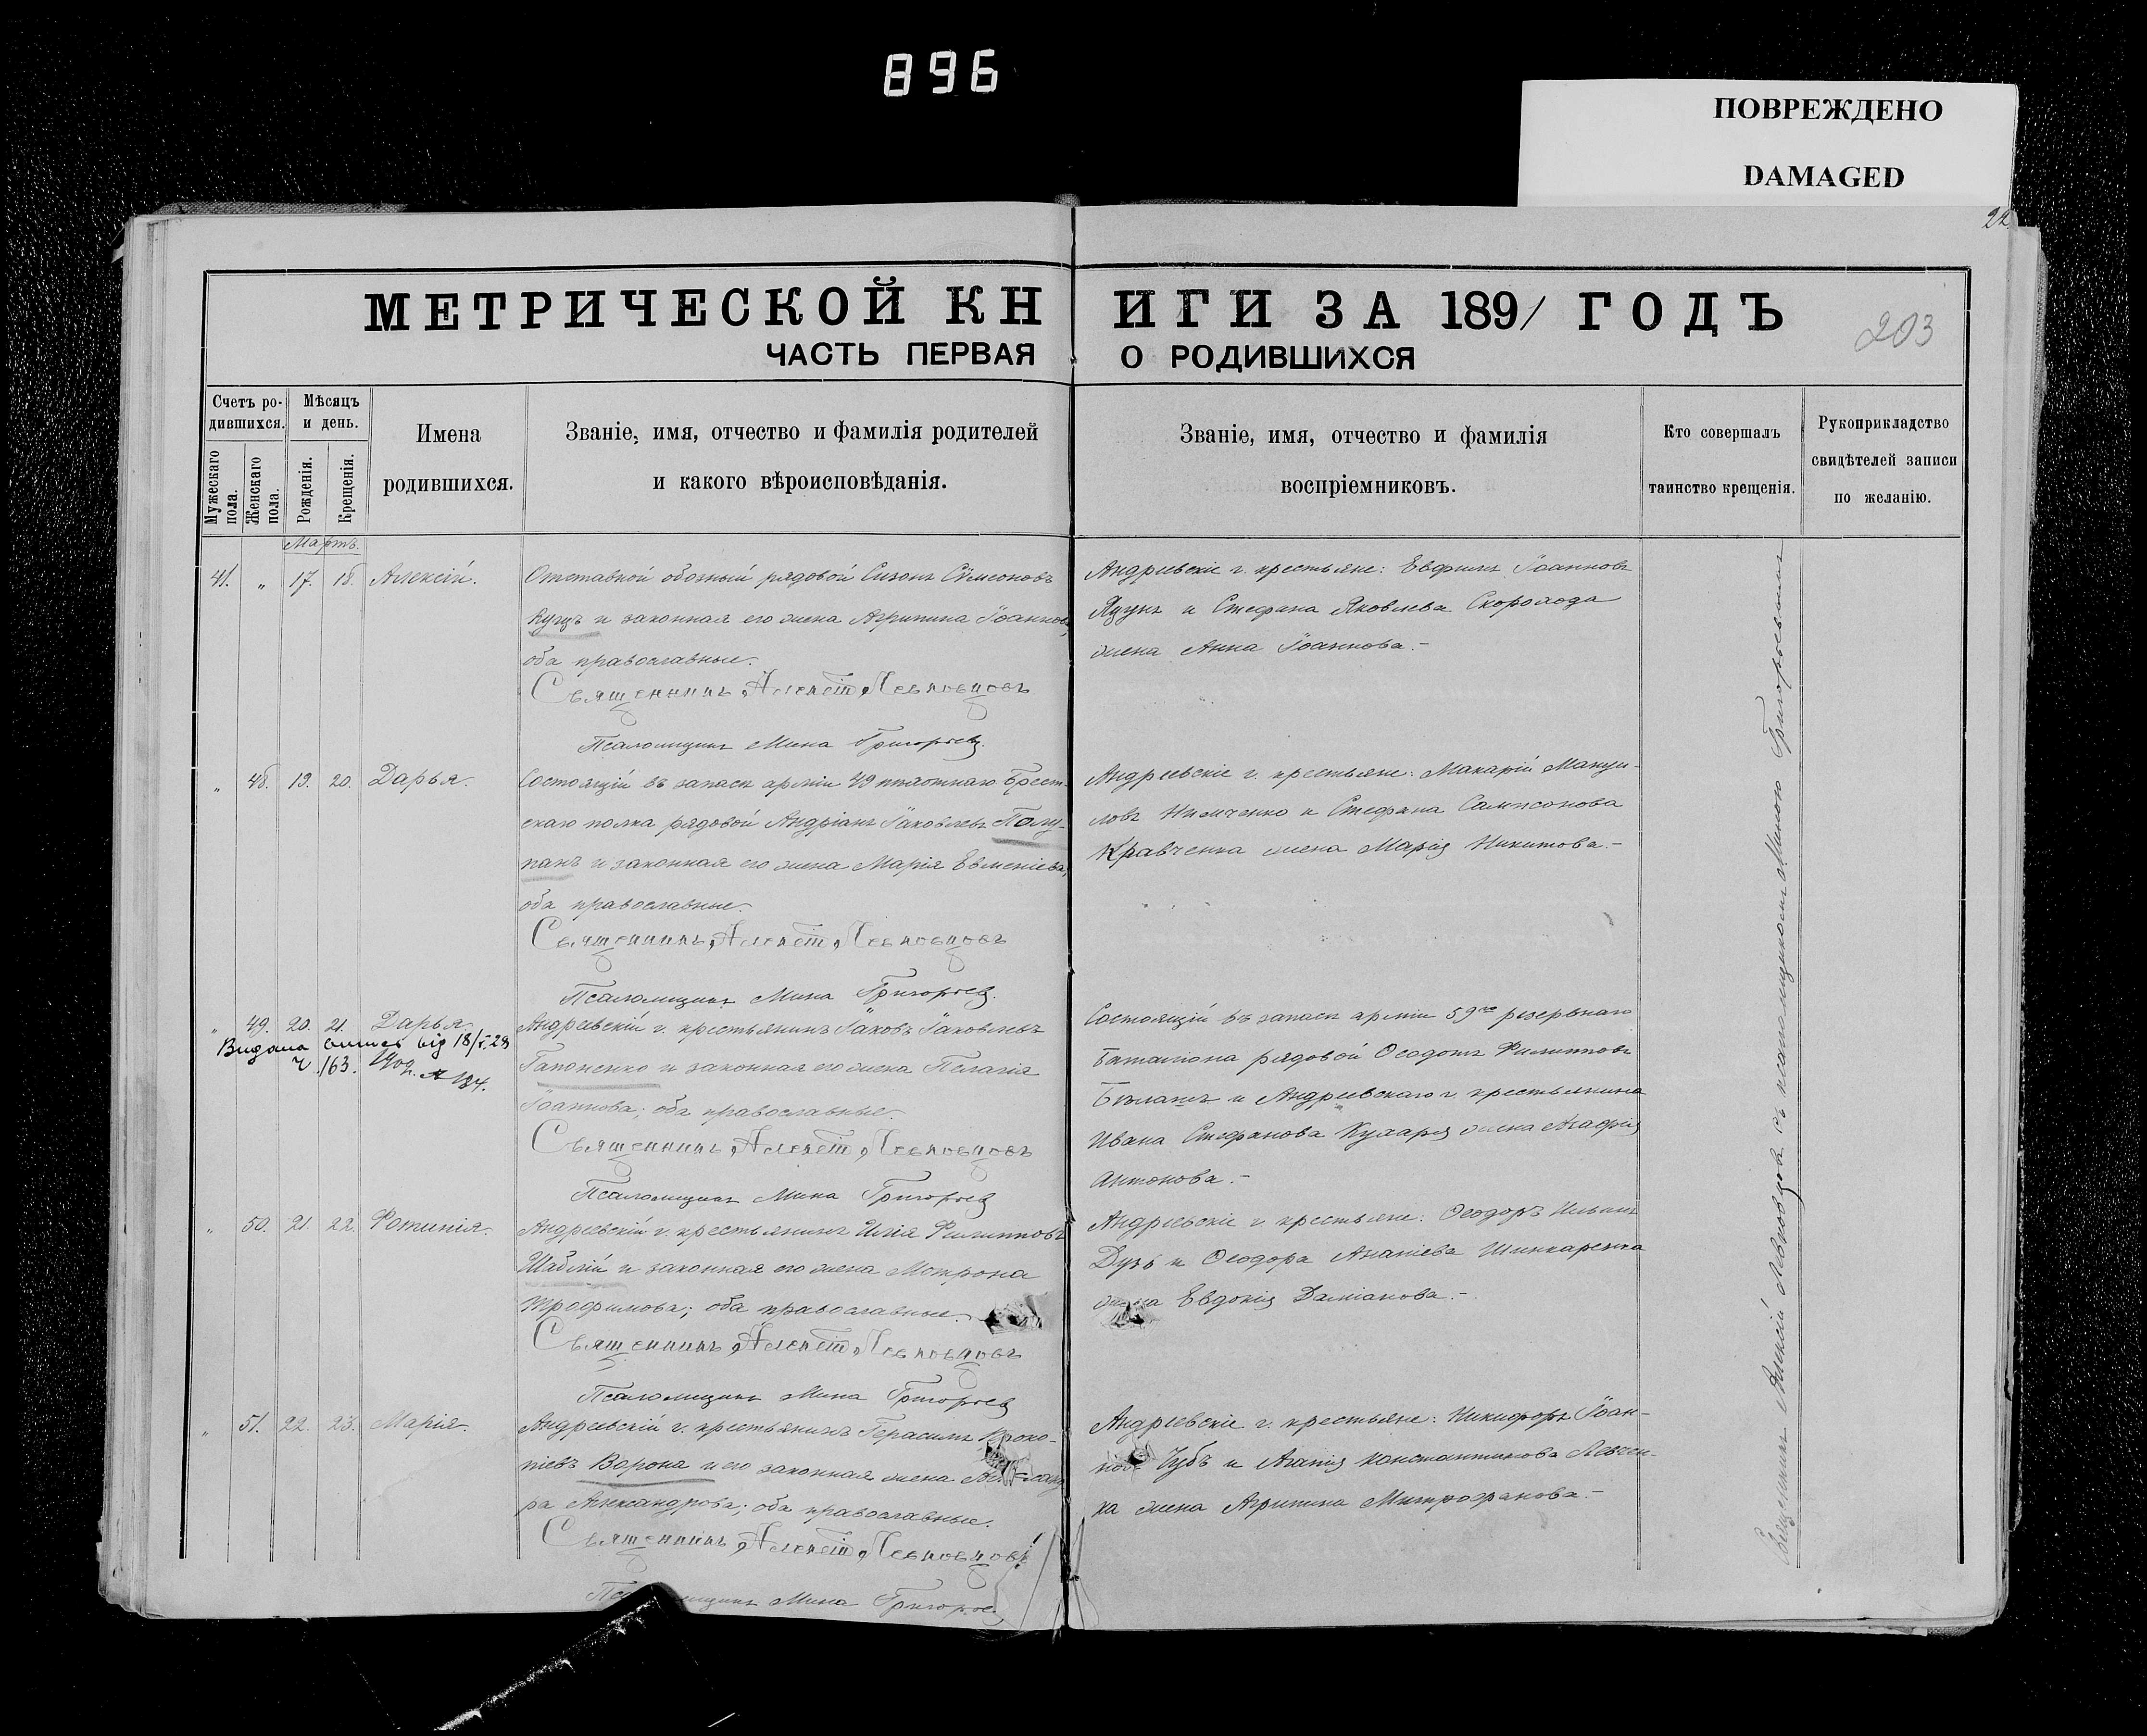 896
ПОВРЕЖДЕНО
DAMAGED
22
МЕТРИЧЕСКОЙ КНИГИ ЗА 1891 ГОДЪ
203
ЧАСТЬ ПЕРВАЯ О РОДИВШИХСЯ
Счетъ родившихся.
Мужескаго пола.
Женскаго пола.
Мѣсяцъ и день.
Рожденія.
Крещенія.
Имена родившихся.
Званіе, имя, отчество и фамилія родителей
и какого вѣроисповѣданія.
Званіе, имя, отчество и фамилія
воспріемниковъ.
Кто совершалъ
таинство крещенія.
Рукоприкладство
свидѣтелей записи
по желанію.
Мартъ.
41. " 17. 18. Алексій.
Отставной обозный рядовой Сизонъ Сѵмеоновъ
Куцъ и законная его жена Агрипина Іоаннова,
оба православные.
Священникъ Алексій Левковцовъ
Псаломщикъ Мина Григорьевъ.
Андреевскіе г. крестьяне: Евфимъ Іоанновъ
Яцунъ и Стефана Яковлева Скорохода
жена Анна Іоаннова.–
" 48. 19. 20. Дарья.
Состоящій въ запасѣ арміи 49 пѣхотнаго Брест-
скаго полка рядовой Андріанъ Іаковлевъ Полу-
панъ и законная его жена Марія Евменіева,
оба православные.
Священникъ Алексій Левковцовъ
Псаломщикъ Мина Григорьевъ.
Андреевскіе г. крестьяне: Макарій Мануи-
ловъ Нимченко и Стефана Сампсонова
Кравченка жена Марія Никитова.–
" 49. 20. 21. Дарья.
Видана виписъ від 18/V-28
ч. 163. № 134.
Андреевскій г. крестьянинъ Іаковъ Іаковлевъ
Гапоненко и законная его жена Пелагія
Іоаннова; оба православные.
Священникъ Алексій Левковцовъ
Псаломщикъ Мина Григорьевъ
Состоящій въ запасѣ арміи 59го резервнаго
баталіона рядовой Ѳеодотъ Филипповъ
Бѣлашъ и Андреевскаго г. крестьянина
Ивана Стефанова Кухаря жена Агафія
Антонова.–
" 50. 21. 22. Фотинія.
Андреевскій г. крестьянинъ Илія Филипповъ
Шаблій и законная его жена Мотрона
Трофимова; оба православные.
Священникъ Алексій Левковцовъ
Псаломщикъ Мина Григорьевъ
Андреевскіе г. крестьяне: Ѳеодоръ Ильинъ
Дузь и Ѳеодора Ананіева Шинкаренка
жена Евдокія Даміанова.–
" 51. 22. 23. Марія.
Андреевскій г. крестьянинъ Герасимъ Проко-
піевъ Ворона и его законная жена
ра Александрова; оба православные.
Священникъ Алексій Левковцовъ
Псаломщикъ Мина Григорьевъ
Андреевскіе г. крестьяне: Никифоръ Іоан-
новъ Чубъ и Агапія Константинова Левчен-
ка жена Агрипина Митрофанова.–
Священникъ Алексій Левковцовъ съ псаломщикомъ Миною Григорьевымъ